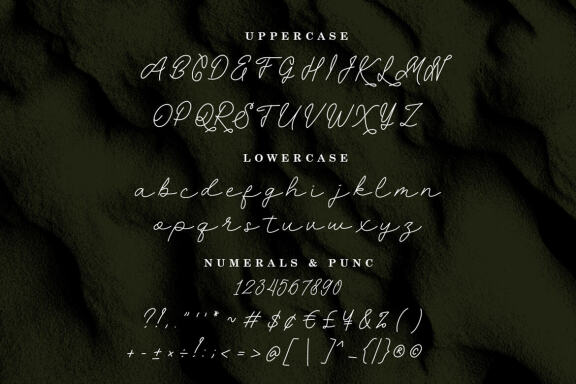 UPPERCASE
ABCDEFGHIJKLMN
OPQRSTUVWXYZ
LOWERCASE
abcdefghijklmn
opqrstuvwxyz
NUMERALS & PUNC
1234567890
?!,."''*~#$¢€£¥&Z()
+-±×÷!:;<=>@[|]^_{|}®©